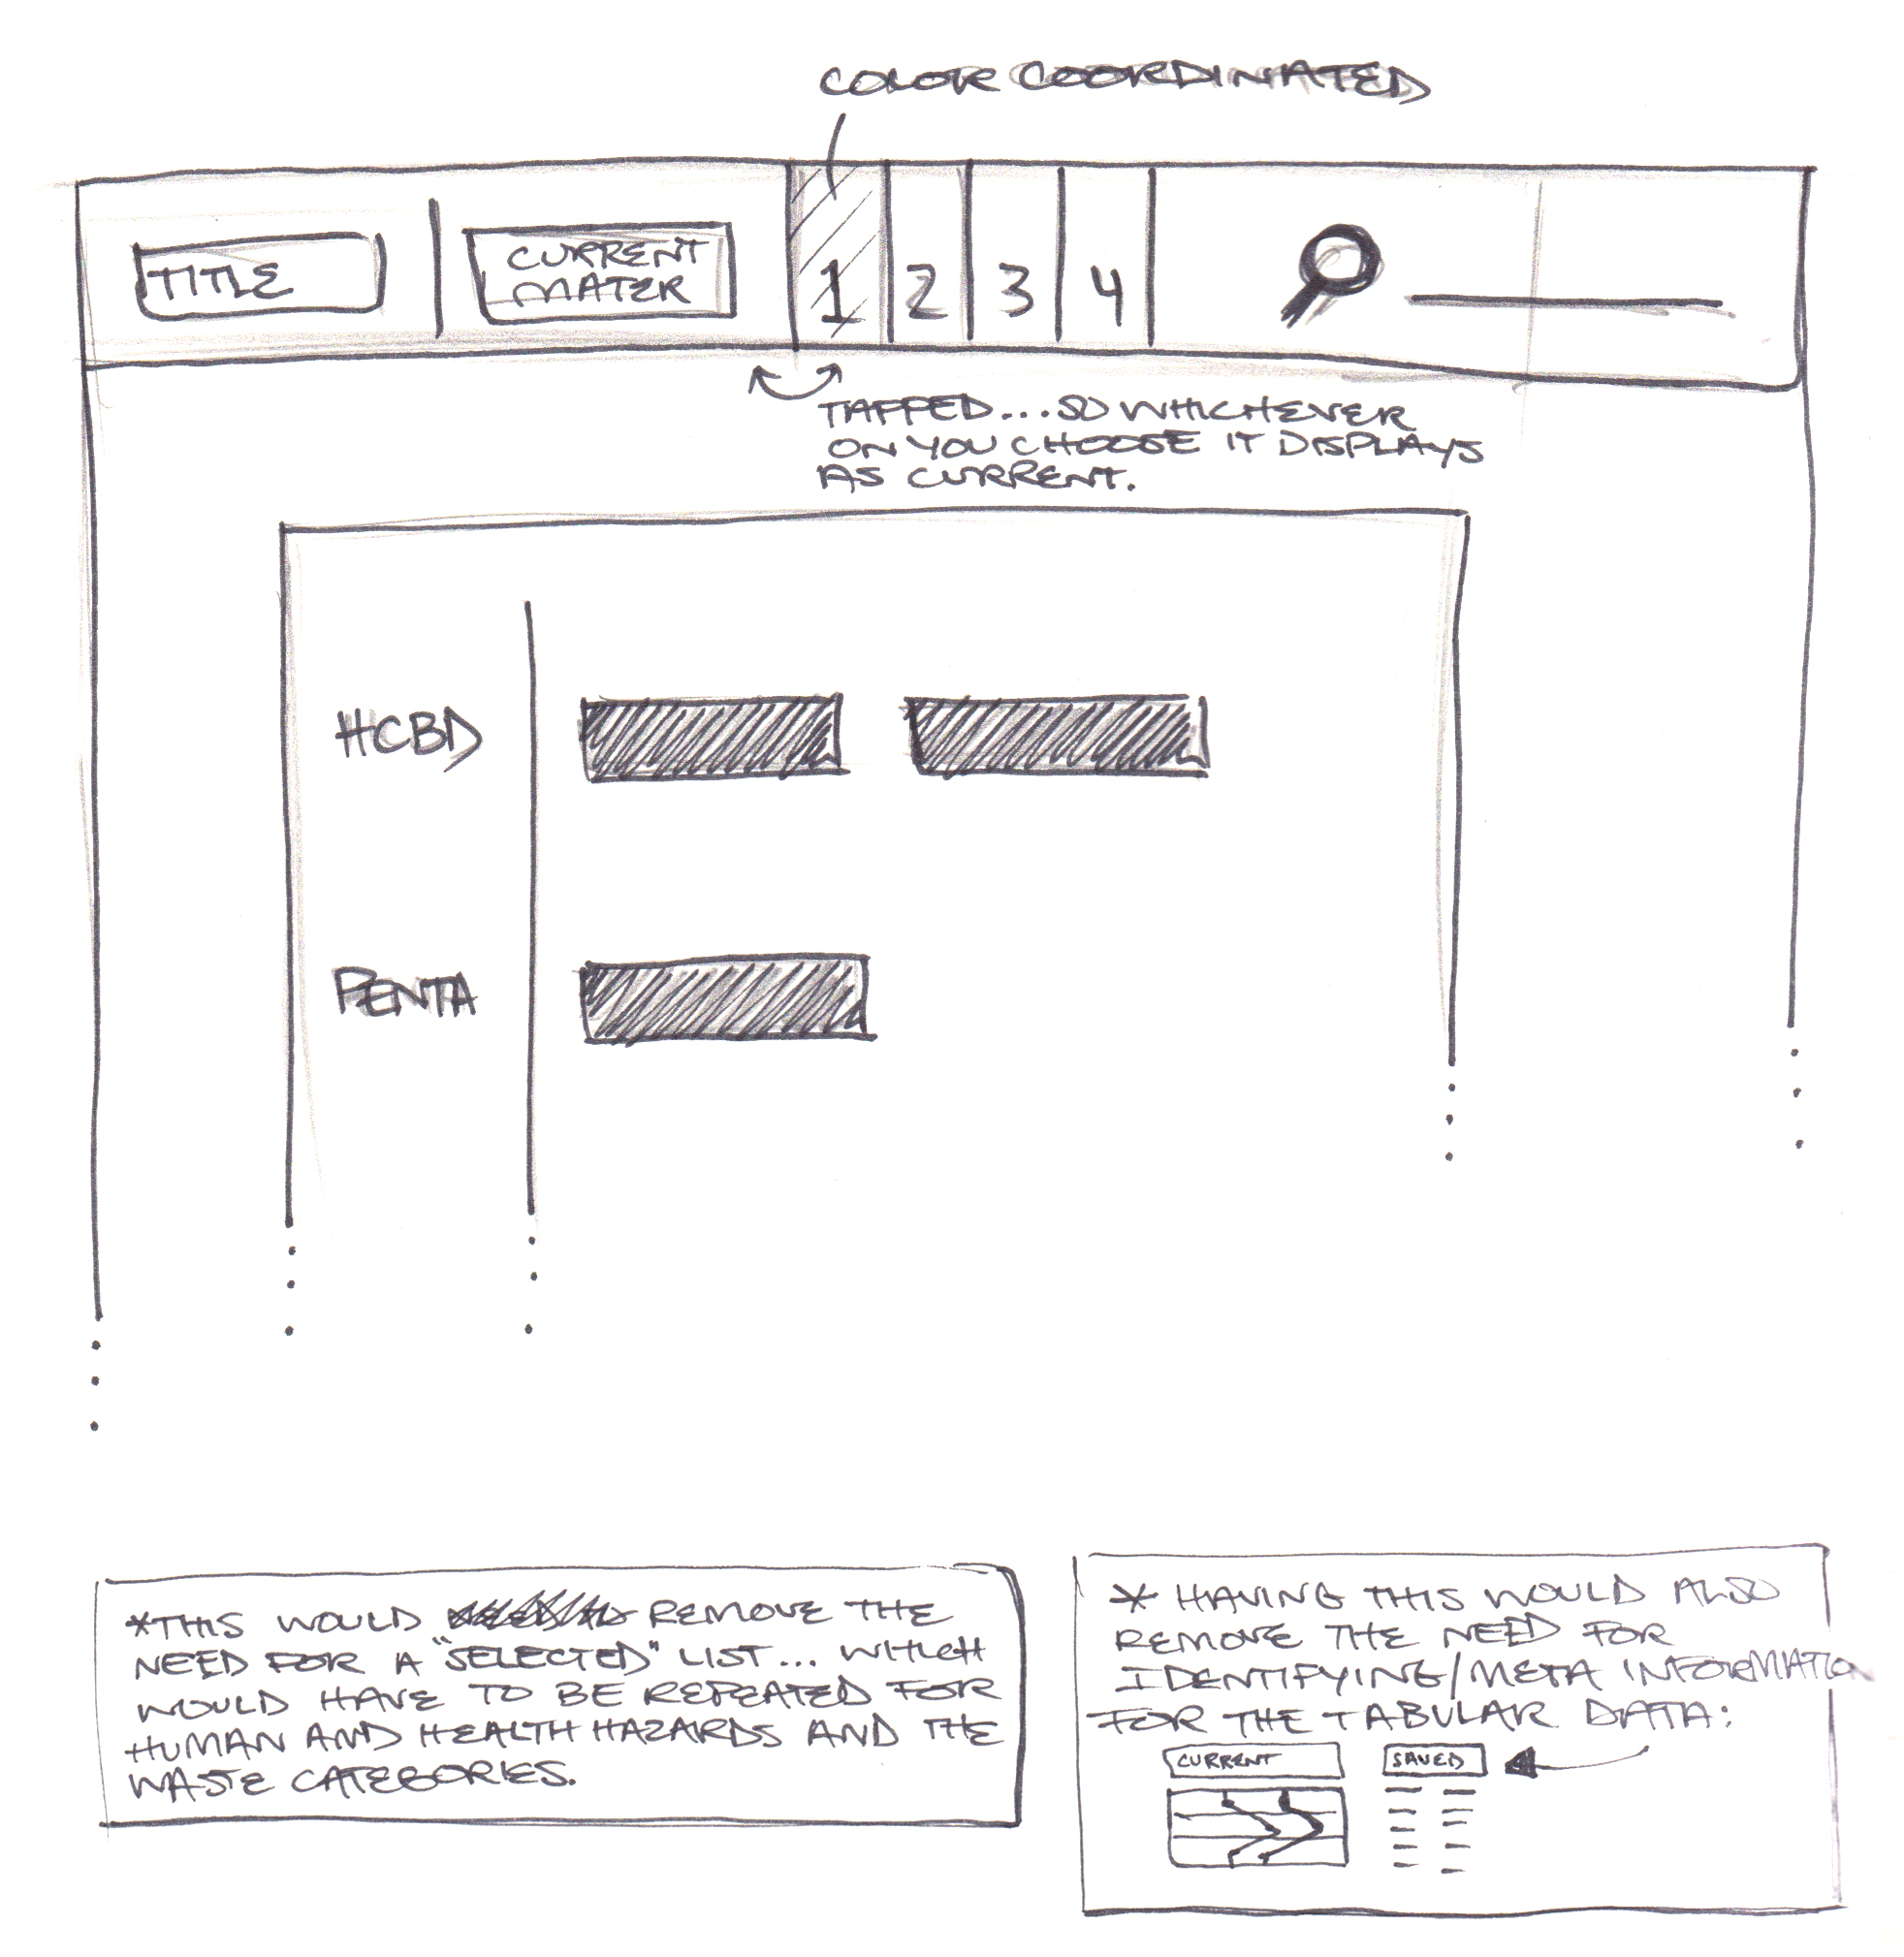 COLOR COORDINATED
TITLE
CURRENT
MATER
1 2 3 4
TAPPED...SO WHICHEVER
ON YOU CHOOSE IT DISPLAYS
AS CURRENT.
HCBD
PENTA
*THIS WOULD REMOVE THE
NEED FOR A "SELECTED" LIST... WHICH
WOULD HAVE TO BE REPEATED FOR
HUMAN AND HEALTH HAZARDS AND THE
WASTE CATEGORIES.
* HAVING THIS WOULD ALSO
REMOVE THE NEED FOR
IDENTIFYING/META INFORMATION
FOR THE TABULAR DATA:
CURRENT SAVED